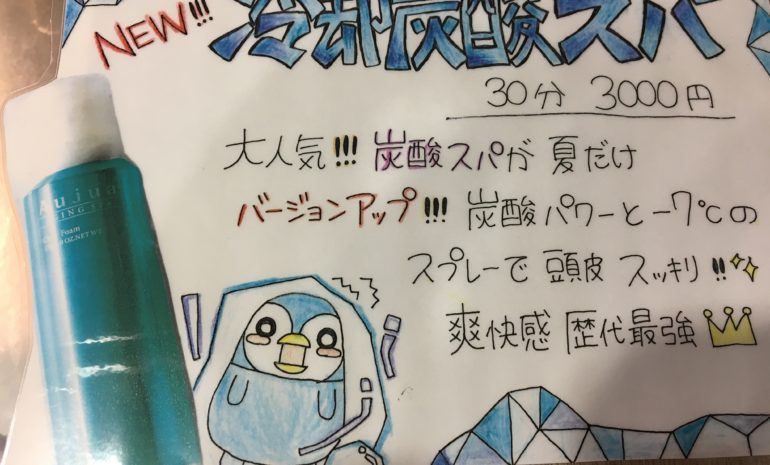 NEW!!!
冷却炭酸スパ
30分 3000円
大人気!!! 炭酸スパが 夏だけ
バージョンアップ!!! 炭酸パワーと-7℃の
スプレーで 頭皮 スッキリ!!
爽快感 歴代最強
Aujua
Foam
OZ.NET WT